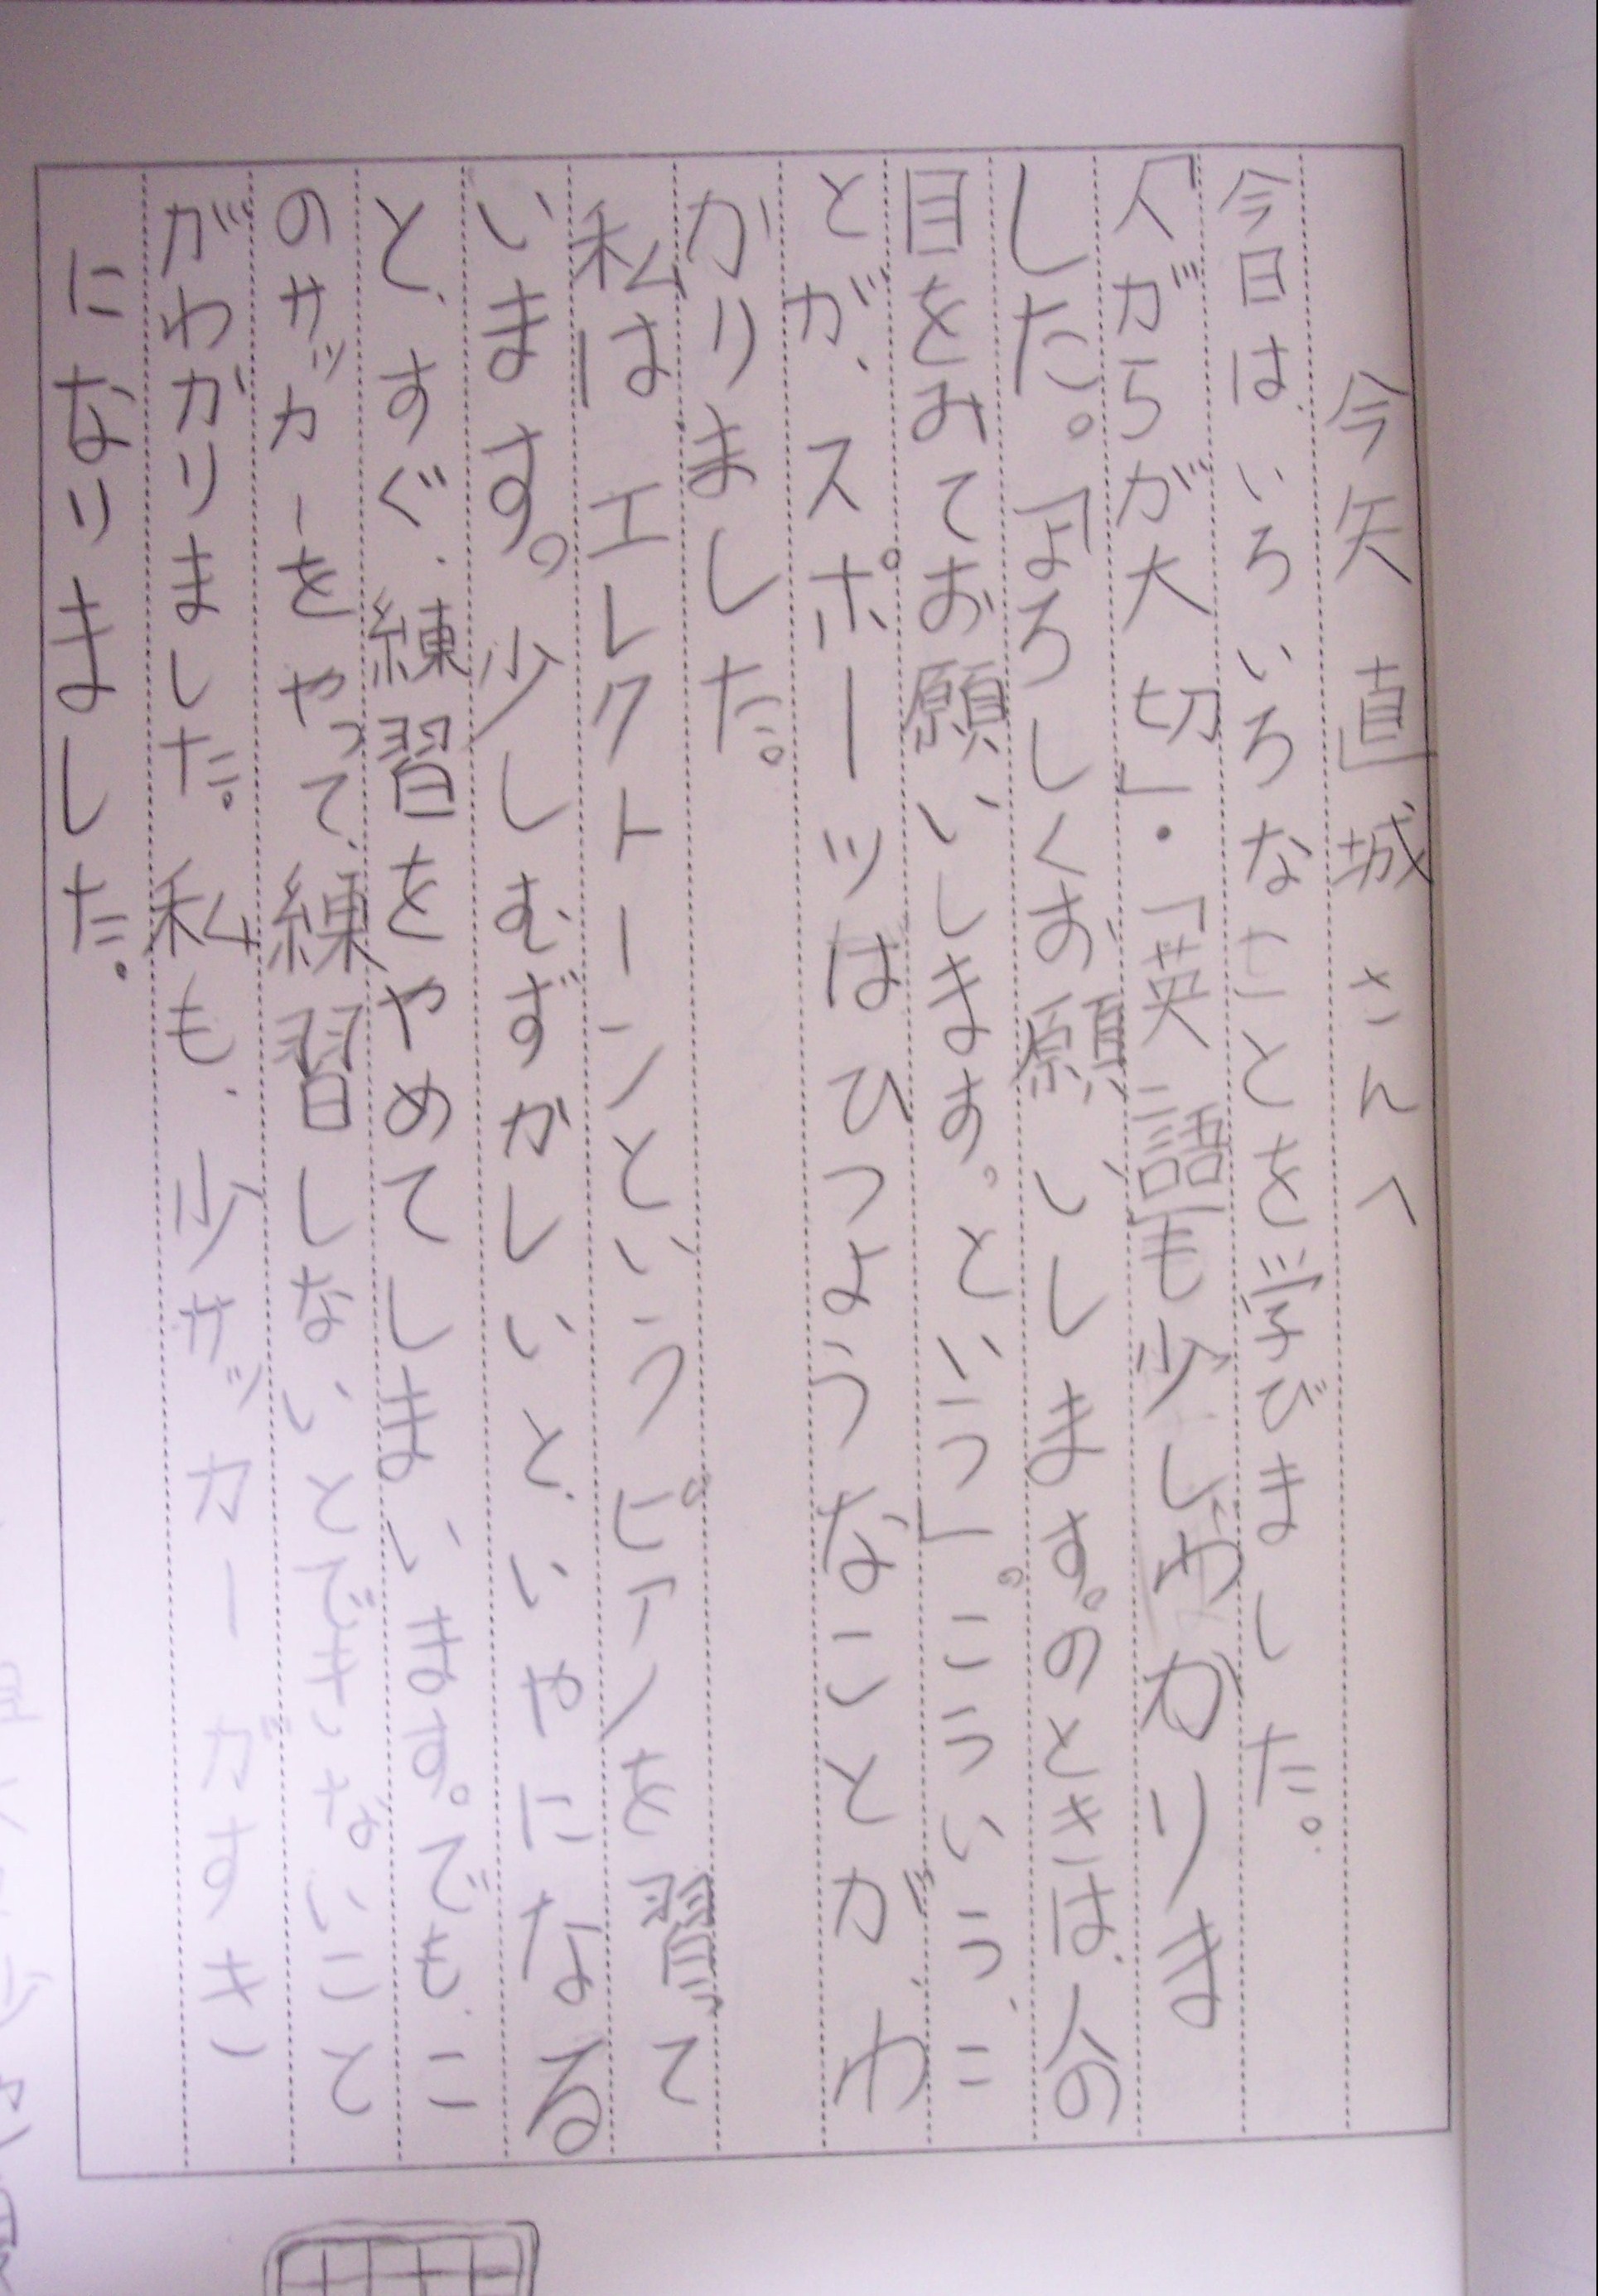 今矢直城さんへ
今日は、いろいろなことを学びました。
「人がらが大切」・「英語」も少しわかりま
した。「よろしくお願いします。のときは、人の
目をみてお願いします。という」。こういう、こ
とが、スポーツはひつようなことが、わ
かりました。
私はエレクトーンというピアノを習って
います。少しむずかしいと、いやになる
と、すぐ、練習をやめてしまいます。でも、こ
のサッカーをやって、練習しないとできないこと
がわかりました。私も、少サッカーがすき
になりました。